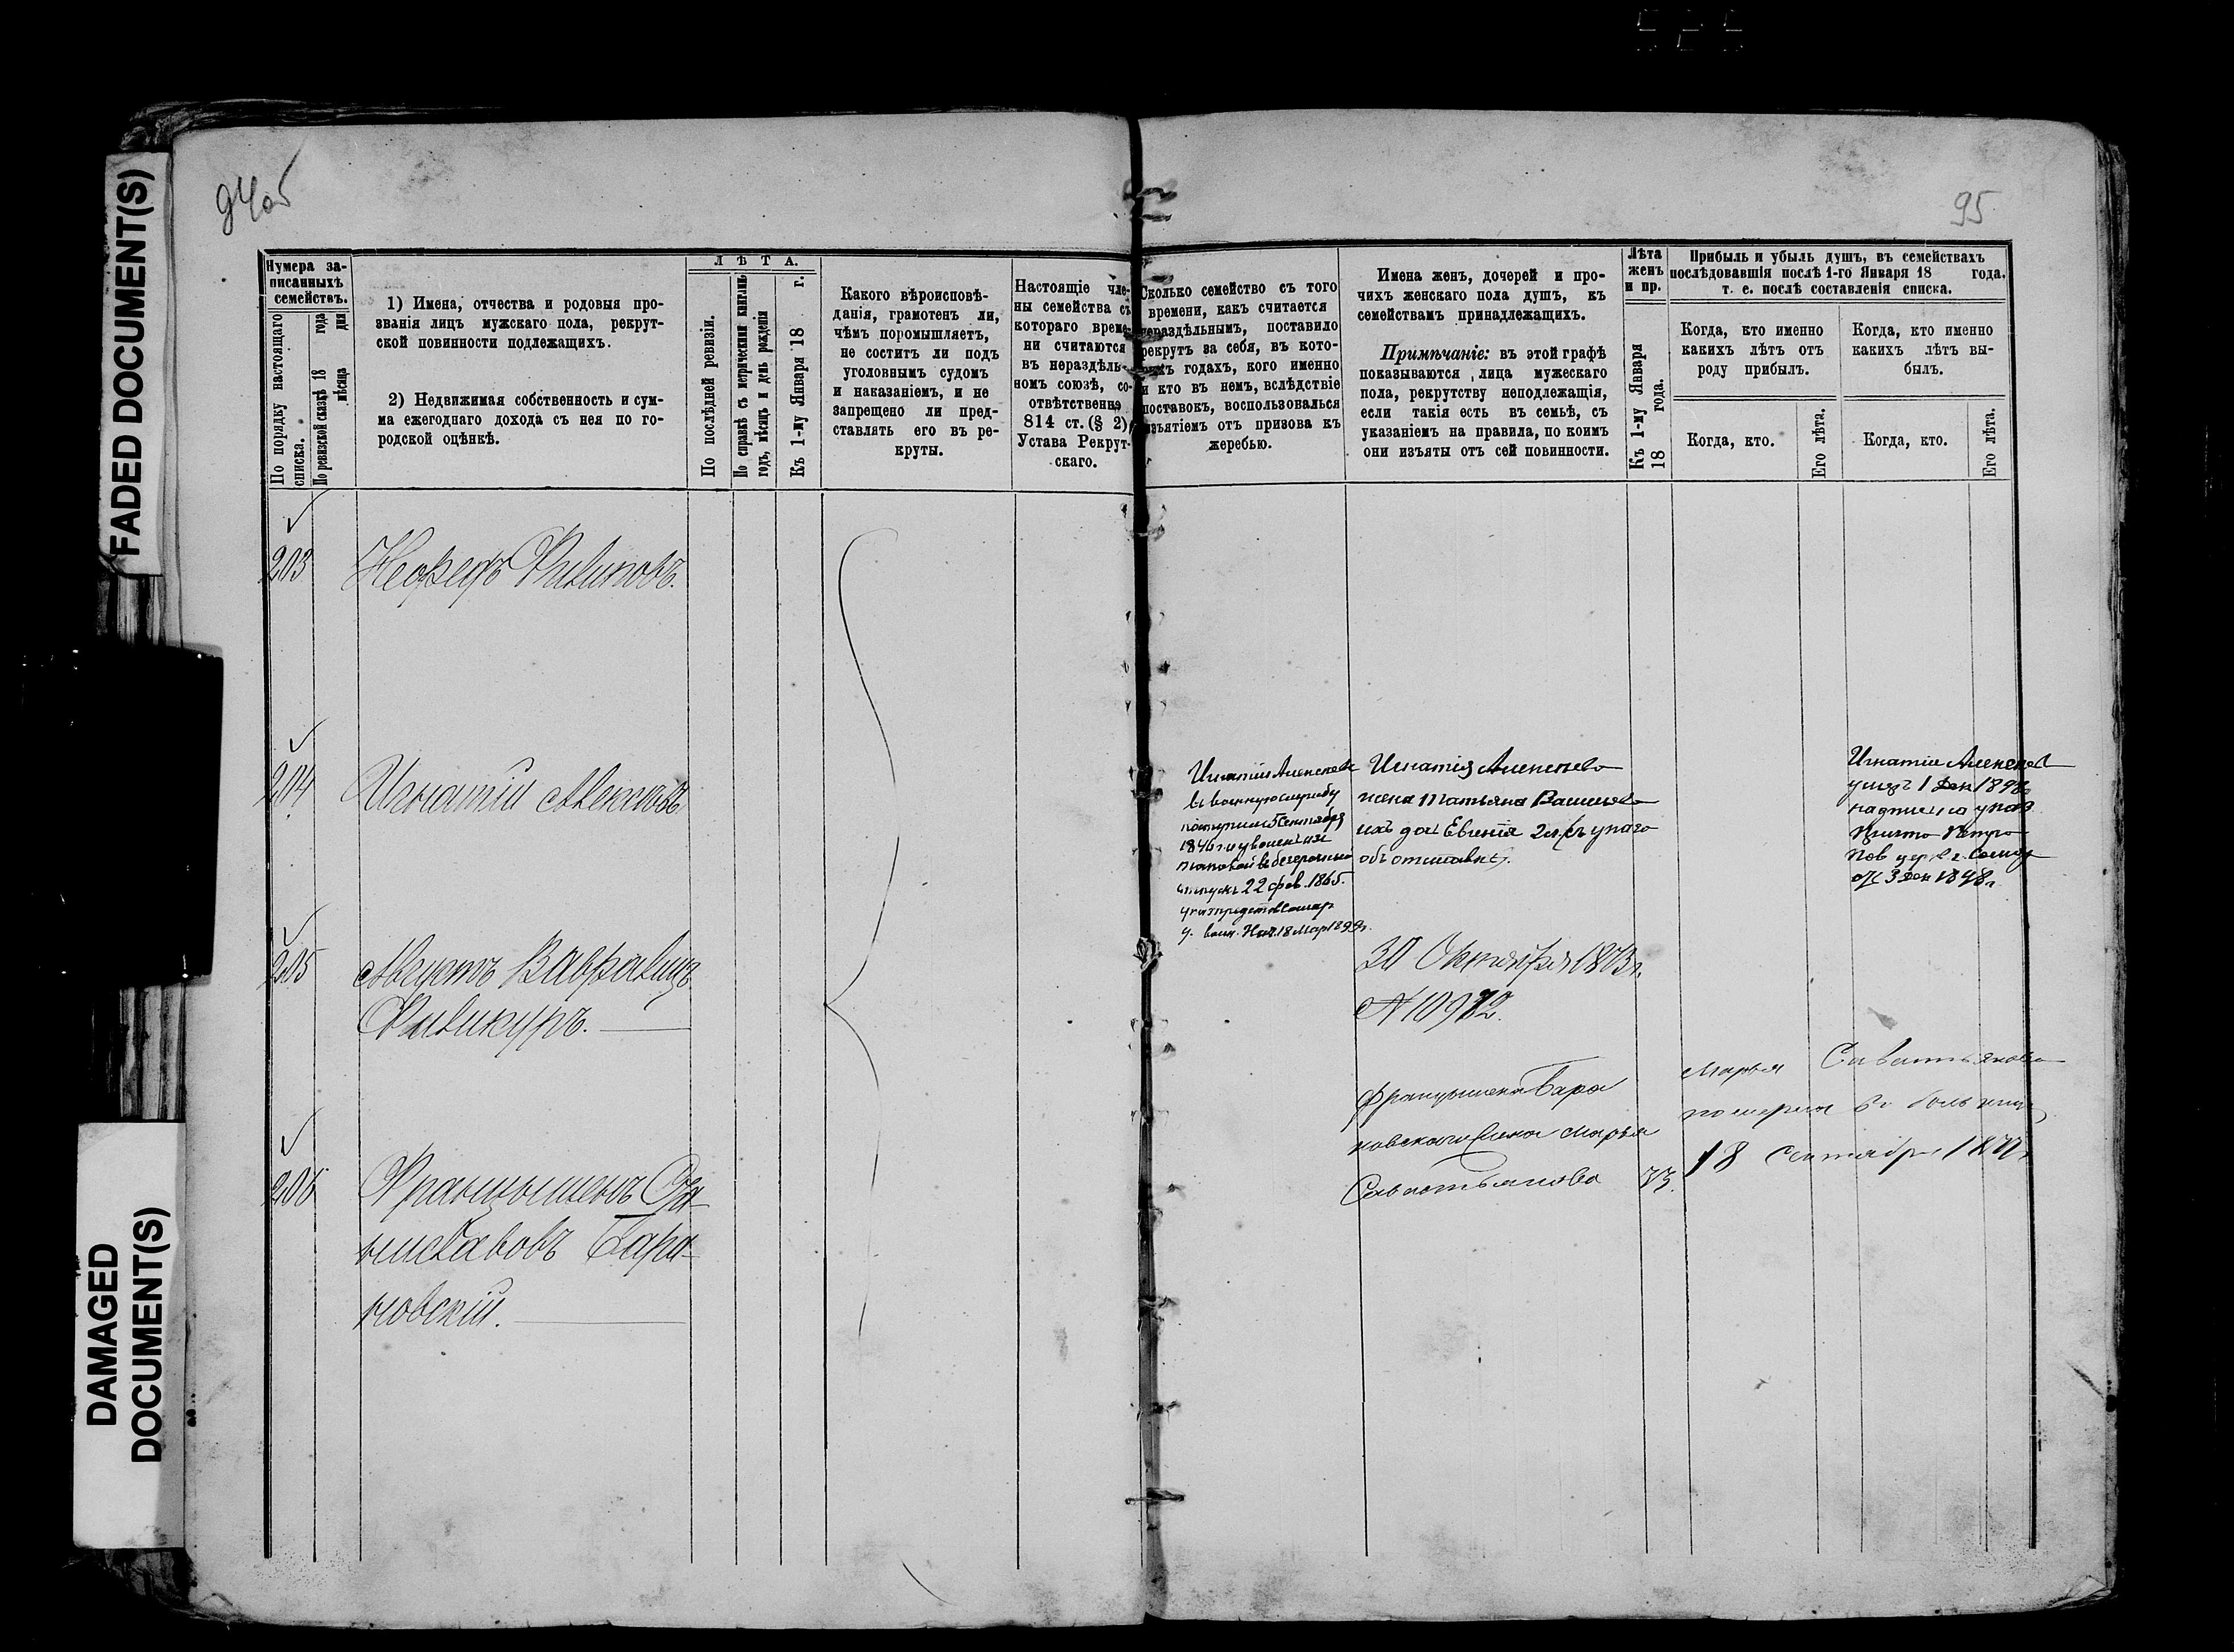 FADED DOCUMENT(S)
DAMAGED
DOCUMENT(S)
94об
95
Нумера за-
писанныхъ
семействъ.
По порядку настоящаго
списка.
По ревизской сказкѣ 18 года
мѣсяца дня
1) Имена, отчества и родовыя про-
званія лицъ мужскаго пола, рекрут-
ской повинности подлежащихъ.
2) Недвижимая собственность и сум-
ма ежегоднаго дохода съ нея по го-
родской оцѣнкѣ.
ЛѢТА.
По послѣдней ревизіи.
По справкѣ съ метрическими книгами
годъ, мѣсяцъ и день рожденія
Къ 1-му Января 18 г.
Какого вѣроисповѣ-
данія, грамотенъ ли,
чѣмъ поромышляетъ,
не соститъ ли подъ
уголовнымъ судомъ
и наказаніемъ, и не
запрещено ли пред-
ставлять его въ ре-
круты.
Настоящіе чле-
ны семейства съ
котораго време-
ни считаются
въ нераздѣль-
номъ союзѣ, со-
отвѣтственно
814 ст. (§ 2)
Устава Рекрут-
скаго.
Сколько семейство съ того
времени, какъ считается
нераздѣльнымъ, поставило
рекрутъ за себя, въ кото-
рыхъ годахъ, кого именно
и кто въ немъ, вслѣдствіе
поставокъ, воспользовался
изъятіемъ отъ призова къ
жеребью.
Имена женъ, дочерей и про-
чихъ женскаго пола душъ, къ
семействамъ принадлежащихъ.
Примѣчаніе: въ этой графѣ
показываются лица мужескаго
пола, рекрутству неподлежащія,
если такія есть въ семьѣ, съ
указаніемъ на правила, по коимъ
они изъяты отъ сей повинности.
Лѣта
женъ
и пр.
Къ 1-му Января
18 года.
Прибыль и убыль душъ, въ семействахъ
послѣдовавшія послѣ 1-го Января 18 года.
т. е. послѣ составленія списка.
Когда, кто именно
какихъ лѣтъ отъ
роду прибылъ.
Когда, кто именно
какихъ лѣтъ вы-
былъ.
Когда, кто.
Его лѣта.
Когда, кто.
Его лѣта.
203 Филиповъ.
204 Игнатій Алексѣевъ
Игнатій Алексѣевъ
въ военную службу
поступилъ 5 Сентября
отпускъ 22 фев. 1865.
Игнатія Алексѣева
жена Татьяна
ихъ доч Евгенія 2л.
объ отставкѣ).
Игнатій Алексѣев
205 Августъ
30 Октября
№
206 Францышекъ Ста-
ниславовъ Бара-
новскій.
Францышека Бара
новскаго жена Марья
Севастьянова 33.
Марья Савастьянова
померла въ больницѣ
18 Сентября